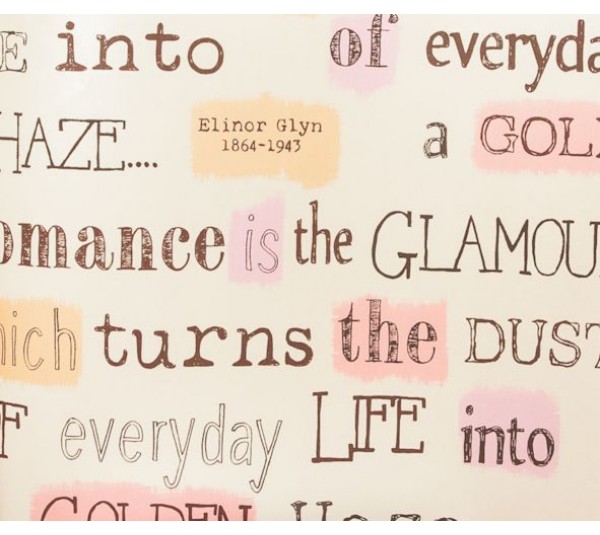 E into of everyda
HAZE....
Elinor Glyn
1864-1943
a GOL
omance is the GLAMOU
hich turns the DUST
F everyday LIFE into
GOLDEN Haze